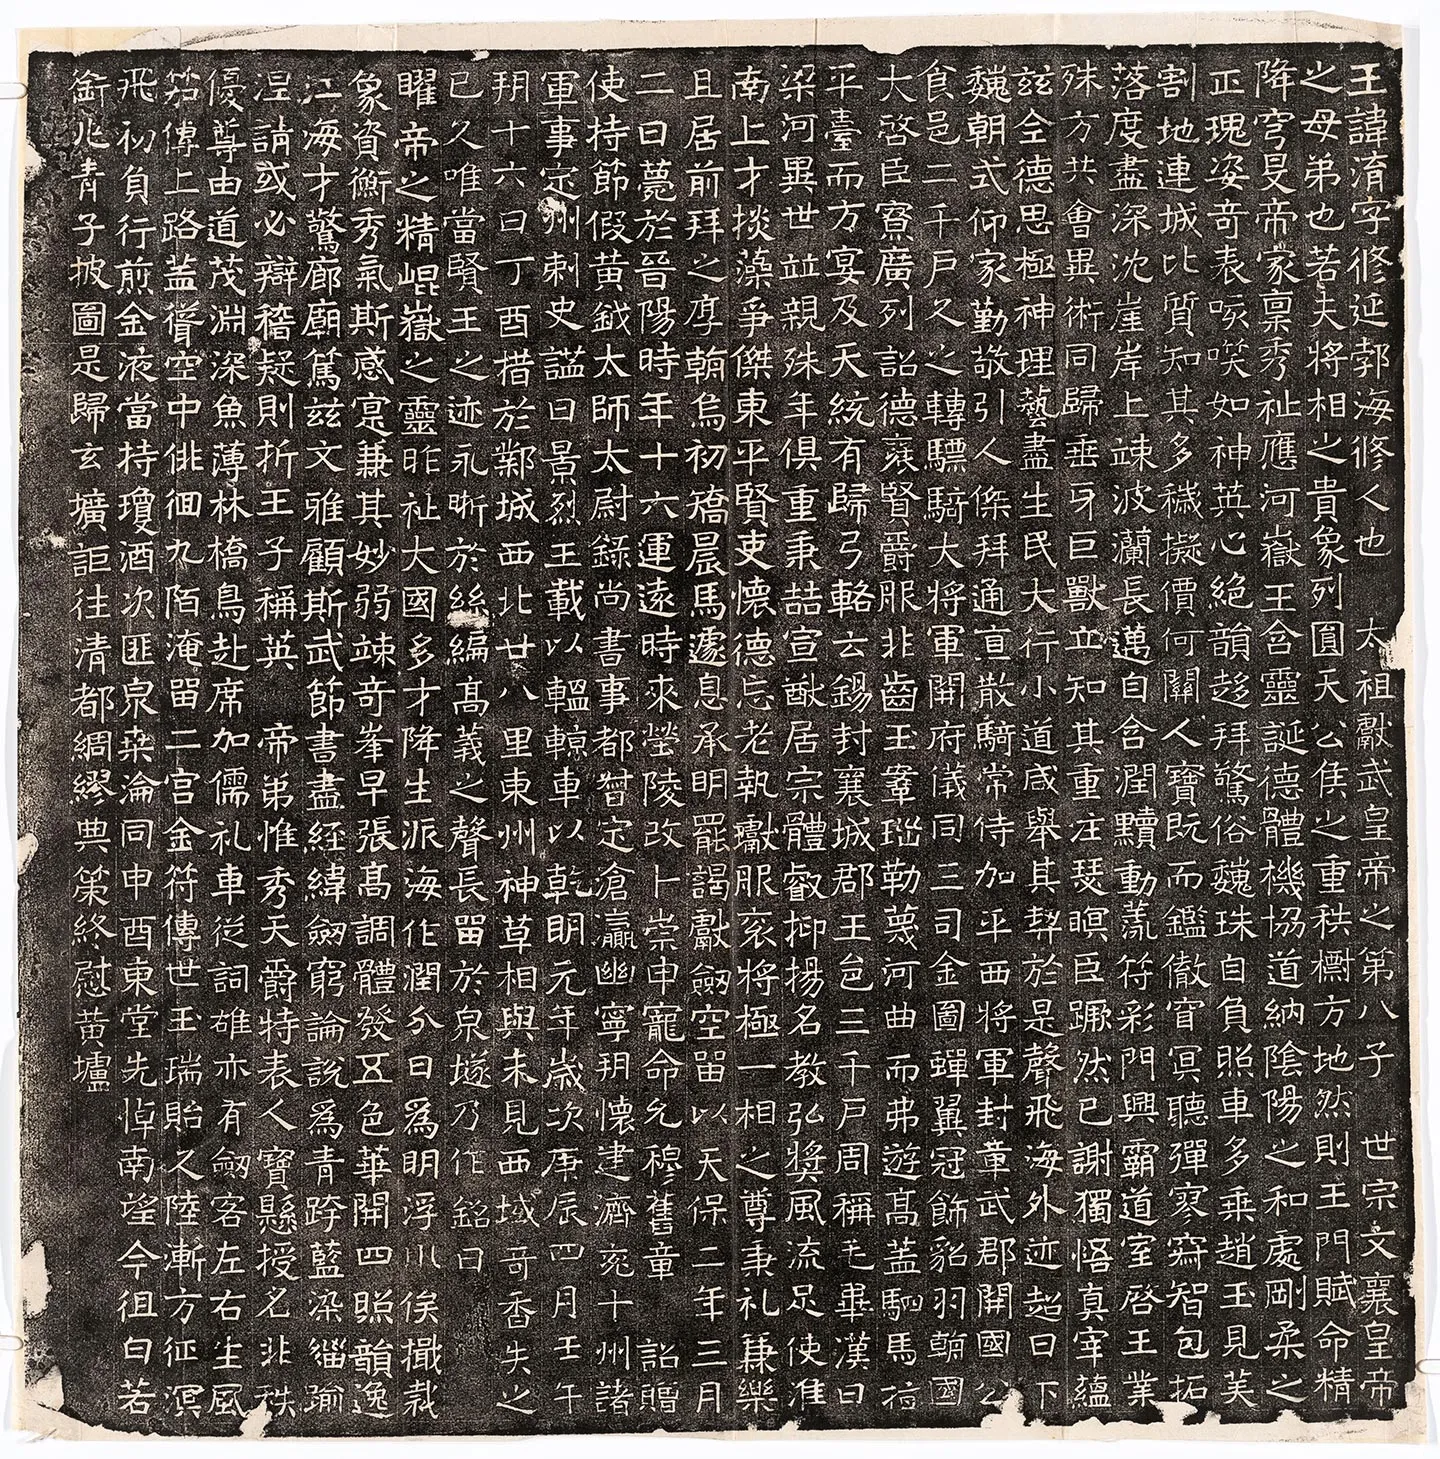 王諱淯字脩延郣海脩人也 太祖獻武皇帝之第八子 世宗文襄皇帝
之母弟也若夫將相之貴象列圓天公侯之重秩檦方地然則王門賦命精
降穹旻帝家稟秀祉應河嶽王含靈誕德體機協道納陰陽之和處剛柔之
正瑰姿奇表咳咲如神英心絕韻趍拜驚俗魏珠自負照車多乘趙玉見美
割地連城比質知其多穢擬價何關人寶既而鑑儌窅冥聽彈寥窮智包拓
落度盡深沈崖岸上竦波瀾長邁自含潤黷動蔫符彩門興霸道室啓王業
殊方共會異術同歸垂牙巨獸立知其重注瑟瞑臣蹶然已謝獨悟真宰蘊
玆全德思極神理藝盡生民大行小道咸舉其契於是聲飛海外迹超日下
魏朝式仰家勤敬引人傑拜通直散騎常侍加平西將軍封章武郡開國公
食邑二千戶久之轉驃騎大將軍開府儀同三司金圖蟬翼冠飾貂羽朝國
大啓臣寮廣列詔德褒賢爵服非齒玉鞶瑙勒薎河曲而弗遊高蓋駟馬指
平臺而方宴及天統有歸弓輅云錫封襄城郡王邑三千戶周稱毛畢漢曰
梁河異世竝親殊年俱重秉喆宣猷居宗體叡抑揚名教弘獎風流足使淮
南上才掞藻爭傑東平賢吏懷德忘老執瓛服衮將極一相之尊秉礼兼樂
且居前拜之序朝烏初矯晨馬遽息承明罷謁獻劒空留以天保二年三月
二日薨於晉陽時年十六運遠時來塋陵改卜崇申寵命允穆舊章 詔贈
使持節假黃鉞太師太尉錄尚書事都督定滄瀛幽寧朔懷建濟兖十州諸
軍事定州刺史謚曰景烈王載以輼輬車以乾明元年歲次庚辰四月壬午
朔十六日丁酉措於鄴城西北廿八里東州神草相與未見西域奇香失之
已久唯當賢王之迹永晰於絲編高義之聲長留於泉墜乃作銘曰
曜帝之精崐嶽之靈昨祉大國多才降生派海作潤分日爲明浮川俟檝裁
象資衡秀氣斯感寔兼其妙弱竦奇峯早張高調體發五色華開四照韻逸
江海才驚廊廟篤玆文雅顧斯武節書盡經緯劒窮論說爲青跨藍染緇踰
涅請或必辯稽疑則折王子稱英 帝弟惟秀天爵特表人寶懸授名非秩
優尊由道茂淵深魚薄林橋鳥赴席加儒礼車從詞雄亦有劒客左右生風
笳傳上路蓋聳空中俳徊九陌淹留二宮金符傳世玉瑞貽久陸漸方征溟
飛初負行煎金液當持瓊酒次匪泉桒淪同申酉東堂先悼南望今徂白若
銜兆青子披圖是歸玄壙詎往清都綢繆典策終慰黃壚